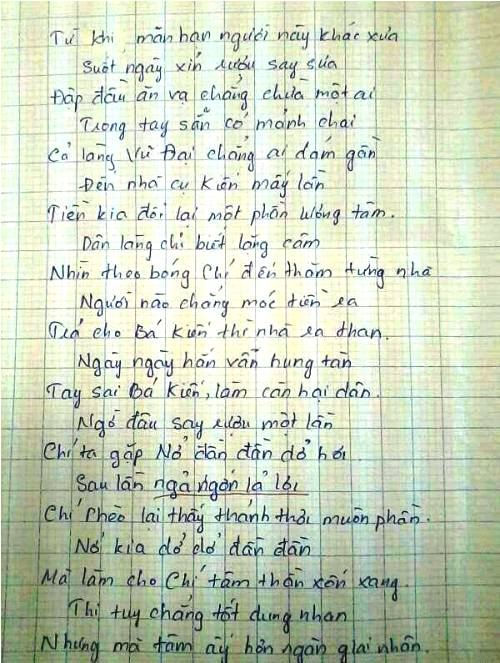 Từ khi mãn hạn người này khác xưa
Suốt ngày xỉn rượu say sưa
Đập đầu ăn vạ chẳng chừa một ai
Trong tay sẵn có mảnh chai
Cả làng Vũ Đại chẳng ai dám gần
Đến nhà cụ Kiến mấy lần
Tiền kia đổi lại một phần lương tâm.
Dân làng chỉ biết lặng câm
Nhìn theo bóng Chí đến thăm từng nhà
Người nào chẳng móc tiền ra
Trả cho Bá Kiến thì nhà ra than.
Ngày ngày hắn vẫn hung tàn
Tay sai Bá Kiến, làm càn hại dân.
Ngờ đâu say rượu một lần
Chí ta gặp Nở đần đần dở hơi
Sau lần ngả ngớn lả lơi
Chí Phèo lại thấy thảnh thơi muôn phần.
Nở kia dở dở đần đần
Mà làm cho Chí tâm thần xốn xang.
Thị tuy chẳng tốt dung nhan
Nhưng mà tâm ấy hơn ngàn giai nhân.